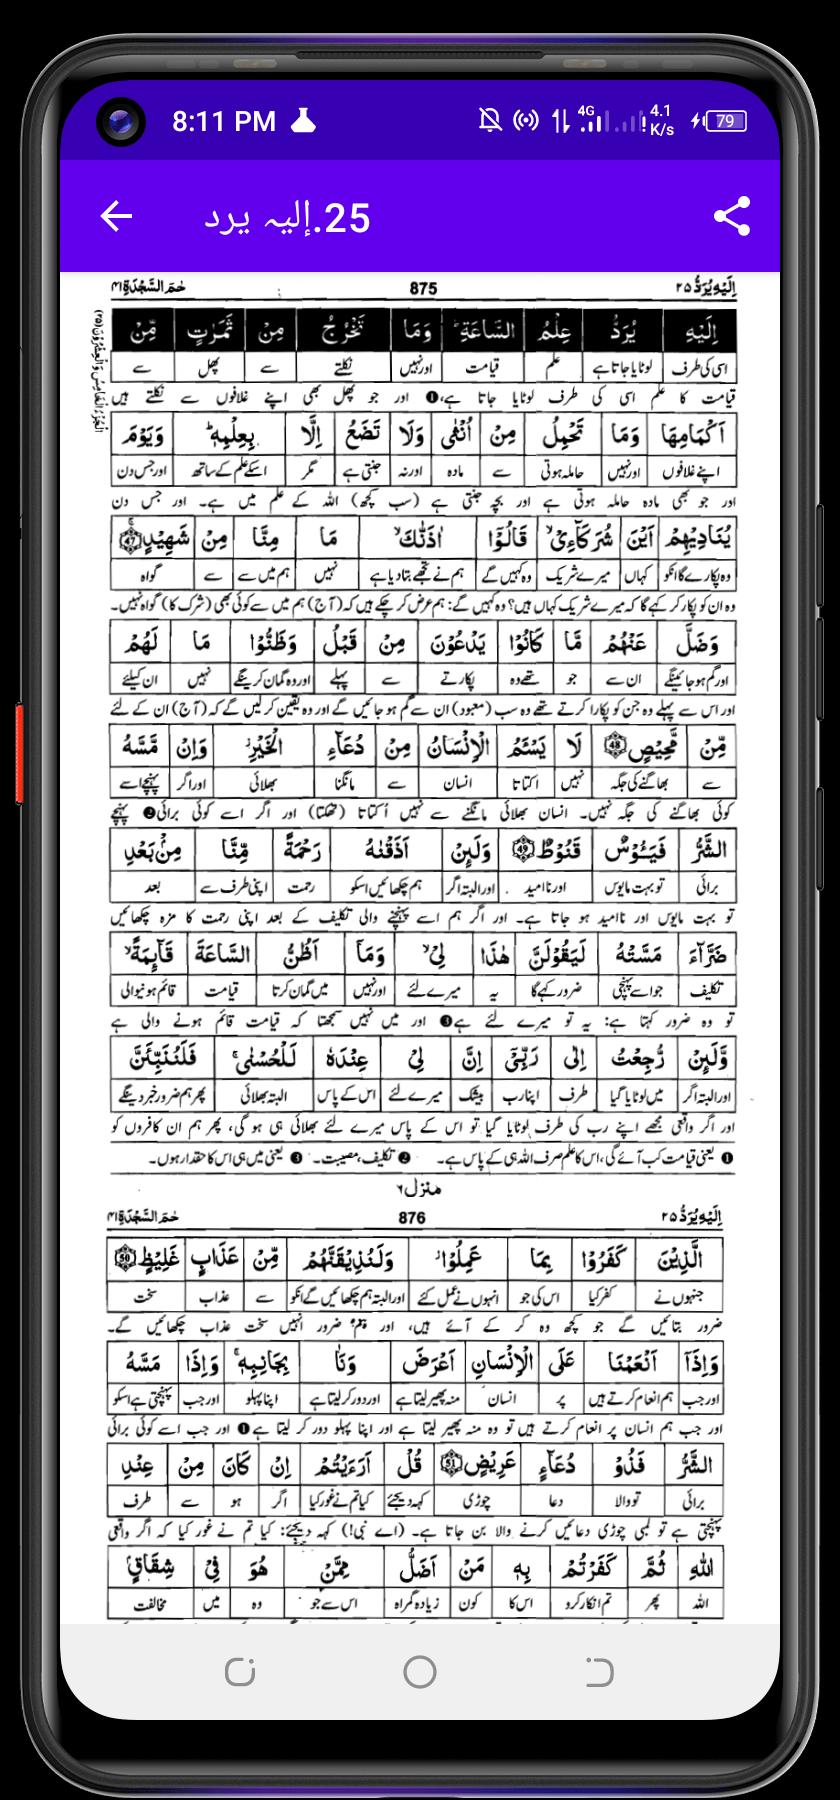 8:11 PM 4G 4.1 K/s 79
25.إلیہ یرد
اِلَيْهِ يُرَدُّ ٢٥ 875 حٰمٓ السَّجْدَة ٤١
اِلَيْهِ يُرَدُّ عِلْمُ السَّاعَةِ ؕ وَمَا تَخْرُجُ مِنْ ثَمَرٰتٍ مِّنْ
اسی کی طرف لوٹایا جاتا ہے علم قیامت اور نہیں نکلتے سے پھل سے
قیامت کا علم اسی کی طرف لوٹایا جاتا ہے،❶ اور جو پھل بھی اپنے غلافوں سے نکلتے ہیں
اَكْمَامِهَا وَمَا تَحْمِلُ مِنْ اُنْثٰى وَلَا تَضَعُ اِلَّا بِعِلْمِهٖ ؕ وَيَوْمَ
اپنے غلافوں اور نہیں حاملہ ہوتی سے مادہ اور نہ جنتی ہے مگر اسکے علم کے ساتھ اور جس دن
اور جو بھی مادہ حاملہ ہوتی ہے اور بچہ جنتی ہے (سب کچھ) اللہ کے علم میں ہے۔ اور جس دن
يُنَادِيْهِمْ اَيْنَ شُرَكَآءِيْ ۙ قَالُوْٓا اٰذَنّٰكَ ۙ مَا مِنَّا مِنْ شَهِيْدٍ ۚ 47
وہ پکارے گا انکو کہاں میرے شریک وہ کہیں گے ہم نے تجھے بتا دیا ہے نہیں ہم میں سے سے گواہ
وہ ان کو پکار کر کہے گا کہ میرے شریک کہاں ہیں؟ وہ کہیں گے: ہم عرض کر چکے ہیں کہ (آج) ہم میں سے کوئی بھی (شرک کا) گواہ نہیں۔
وَضَلَّ عَنْهُمْ مَّا كَانُوْا يَدْعُوْنَ مِنْ قَبْلُ وَظَنُّوْا مَا لَهُمْ
اور گم ہو جائینگے ان سے جو تھے وہ پکارتے سے پہلے اور وہ گمان کرینگے نہیں ان کیلئے
اور اس سے پہلے وہ جن کو پکارا کرتے تھے وہ سب (معبود) ان سے گم ہو جائیں گے اور وہ یقین کر لیں گے کہ (آج) ان کے لئے
مِّنْ مَّحِيْصٍ 48 لَا يَسْـَٔمُ الْاِنْسَانُ مِنْ دُعَآءِ الْخَيْرِ ۡ وَاِنْ مَّسَّهُ
سے بھاگنے کی جگہ نہیں اکتاتا انسان سے مانگنا بھلائی اور اگر پہنچے اسے
کوئی بھاگنے کی جگہ نہیں۔ انسان بھلائی مانگنے سے نہیں اُکتاتا (تھکتا) اور اگر اسے کوئی برائی❷ پہنچے
الشَّرُّ فَيَـُٔوْسٌ قَنُوْطٌ 49 وَلَئِنْ اَذَقْنٰهُ رَحْمَةً مِّنَّا مِنْۢ بَعْدِ
برائی تو بہت مایوس اور ناامید اور البتہ اگر ہم چکھائیں اسکو رحمت اپنی طرف سے بعد
تو بہت مایوس اور ناامید ہو جاتا ہے۔ اور اگر ہم اسے پہنچنے والی تکلیف کے بعد اپنی رحمت کا مزہ چکھائیں
ضَرَّآءَ مَسَّتْهُ لَيَقُوْلَنَّ هٰذَا لِيْ ۙ وَمَآ اَظُنُّ السَّاعَةَ قَآئِمَةً ۙ
تکلیف جو اسے پہنچی ضرور کہے گا یہ میرے لئے اور نہیں میں گمان کرتا قیامت قائم ہونیوالی
تو وہ ضرور کہتا ہے: یہ تو میرے لئے ہے❸ اور میں نہیں سمجھتا کہ قیامت قائم ہونے والی ہے
وَّلَئِنْ رُّجِعْتُ اِلٰى رَبِّيْٓ اِنَّ لِيْ عِنْدَهٗ لَلْحُسْنٰى ۚ فَلَنُنَبِّئَنَّ
اور البتہ اگر میں لوٹایا گیا طرف اپنا رب بیشک میرے لئے اس کے پاس البتہ بھلائی پھر ہم ضرور خبر دینگے
اور اگر واقعی مجھے اپنے رب کی طرف لوٹایا گیا تو اس کے پاس میرے لئے بھلائی ہی ہو گی، پھر ہم ان کافروں کو
❶ یعنی قیامت کب آئے گی، اس کا علم صرف اللہ ہی کے پاس ہے۔ ❷ تکلیف، مصیبت۔ ❸ یعنی میں ہی اس کا حقدار ہوں۔
منزل ٦
اِلَيْهِ يُرَدُّ ٢٥ 876 حٰمٓ السَّجْدَة ٤١
الَّذِيْنَ كَفَرُوْا بِمَا عَمِلُوْا ۡ وَلَنُذِيْقَنَّهُمْ مِّنْ عَذَابٍ غَلِيْظٍ 50
جنہوں نے کفر کیا اس کی جو انہوں نے عمل کئے اور البتہ ہم چکھائیں گے انکو سے عذاب سخت
ضرور بتائیں گے جو کچھ وہ کر کے آئے ہیں، اور ہم ضرور انہیں سخت عذاب چکھائیں گے۔
وَاِذَآ اَنْعَمْنَا عَلَى الْاِنْسَانِ اَعْرَضَ وَنَاٰ بِجَانِبِهٖ ۚ وَاِذَا مَسَّهُ
اور جب ہم انعام کرتے ہیں پر انسان منہ پھیر لیتا ہے اور دور کر لیتا ہے اپنا پہلو اور جب پہنچتی ہے اسکو
اور جب ہم انسان پر انعام کرتے ہیں تو وہ منہ پھیر لیتا ہے اور اپنا پہلو دور کر لیتا ہے❶ اور جب اسے کوئی برائی
الشَّرُّ فَذُوْ دُعَآءٍ عَرِيْضٍ 51 قُلْ اَرَءَيْتُمْ اِنْ كَانَ مِنْ عِنْدِ
برائی تو والا دعا چوڑی کہہ دیجئے کیا تم نے غور کیا اگر ہو سے طرف
پہنچتی ہے تو لمبی چوڑی دعائیں کرنے والا بن جاتا ہے۔ (اے نبی!) کہہ دیجئے: کیا تم نے غور کیا کہ اگر واقعی
اللّٰهِ ثُمَّ كَفَرْتُمْ بِهٖ مَنْ اَضَلُّ مِمَّنْ هُوَ فِيْ شِقَاقٍۢ
اللہ پھر تم انکار کرو اس کا کون زیادہ گمراہ اس سے جو وہ میں مخالفت